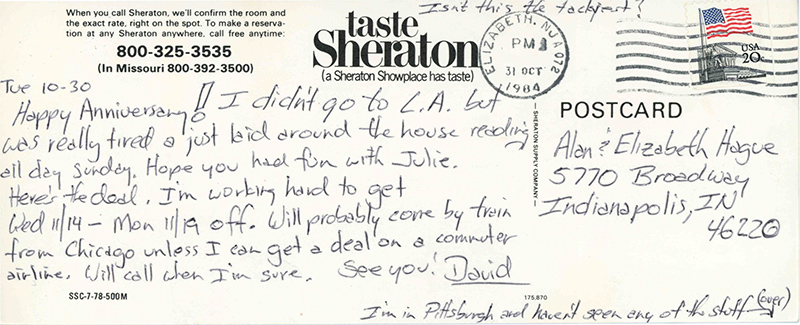 When you call Sheraton, we'll confirm the room and
the exact rate, right on the spot. To make a reserva-
tion at any Sheraton anywhere, call free anytime:
800-325-3535
(In Missouri 800-392-3500)
taste
Sheraton
(a Sheraton Showplace has taste)
Isn't this the tackiest?
ELIZABETH, NJ 072
PM
31 OCT
1984
USA
20c
Tue 10-30
Happy Anniversary!! I didn't go to L.A. but
was really tired & just laid around the house reading
all day Sunday. Hope you had fun with Julie.
Here's the deal. I'm working hard to get
Wed 11/14 - Mon 11/19 off. Will probably come by train
from Chicago unless I can get a deal on a commuter
airline. Will call when I'm sure. See you! David
SHERATON SUPPLY COMPANY
POSTCARD
Alan & Elizabeth Hague
5770 Broadway
Indianapolis, IN
46220
SSC-7-78-500M
175,870
I'm in Pittsburgh and haven't seen any of the stuff (over)